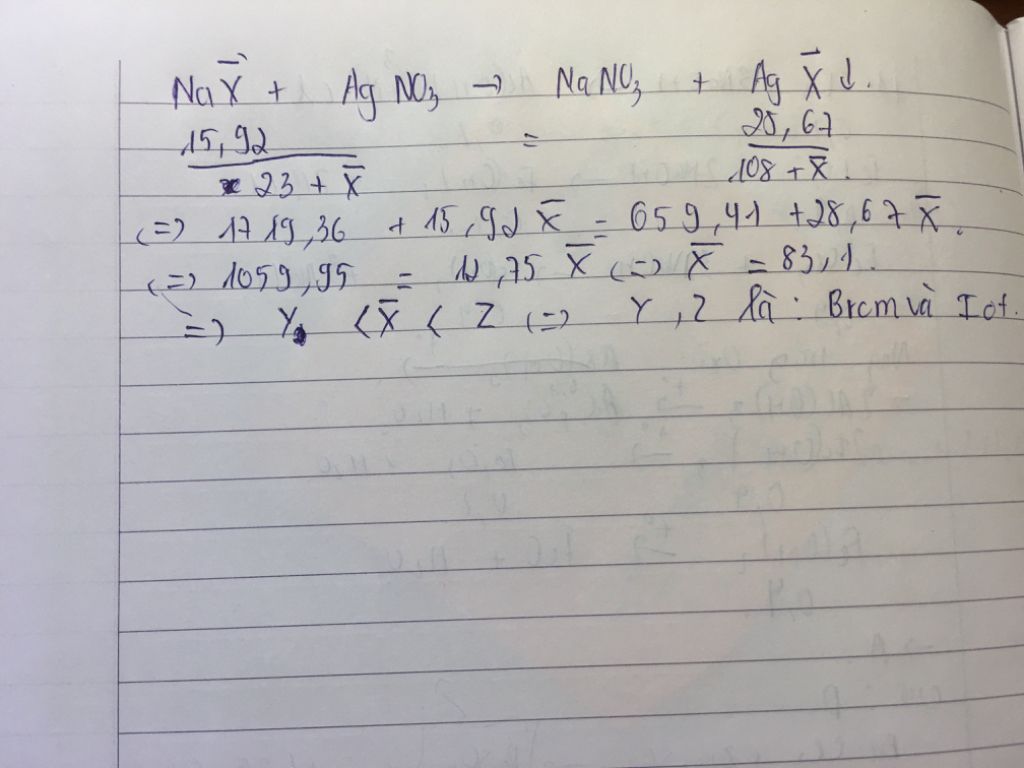 NaX̄ + AgNO₃ → NaNO₃ + AgX̄↓.
15,92 = 28,67
23 + X̄ 108 + X̄.
(=) 1719,36 + 15,92 X̄ = 659,41 + 28,67 X̄.
(=) 1059,95 = 12,75 X̄ (=) X̄ = 83,1.
=) Y < X̄ < Z (=) Y, Z là : Brom và Iot.